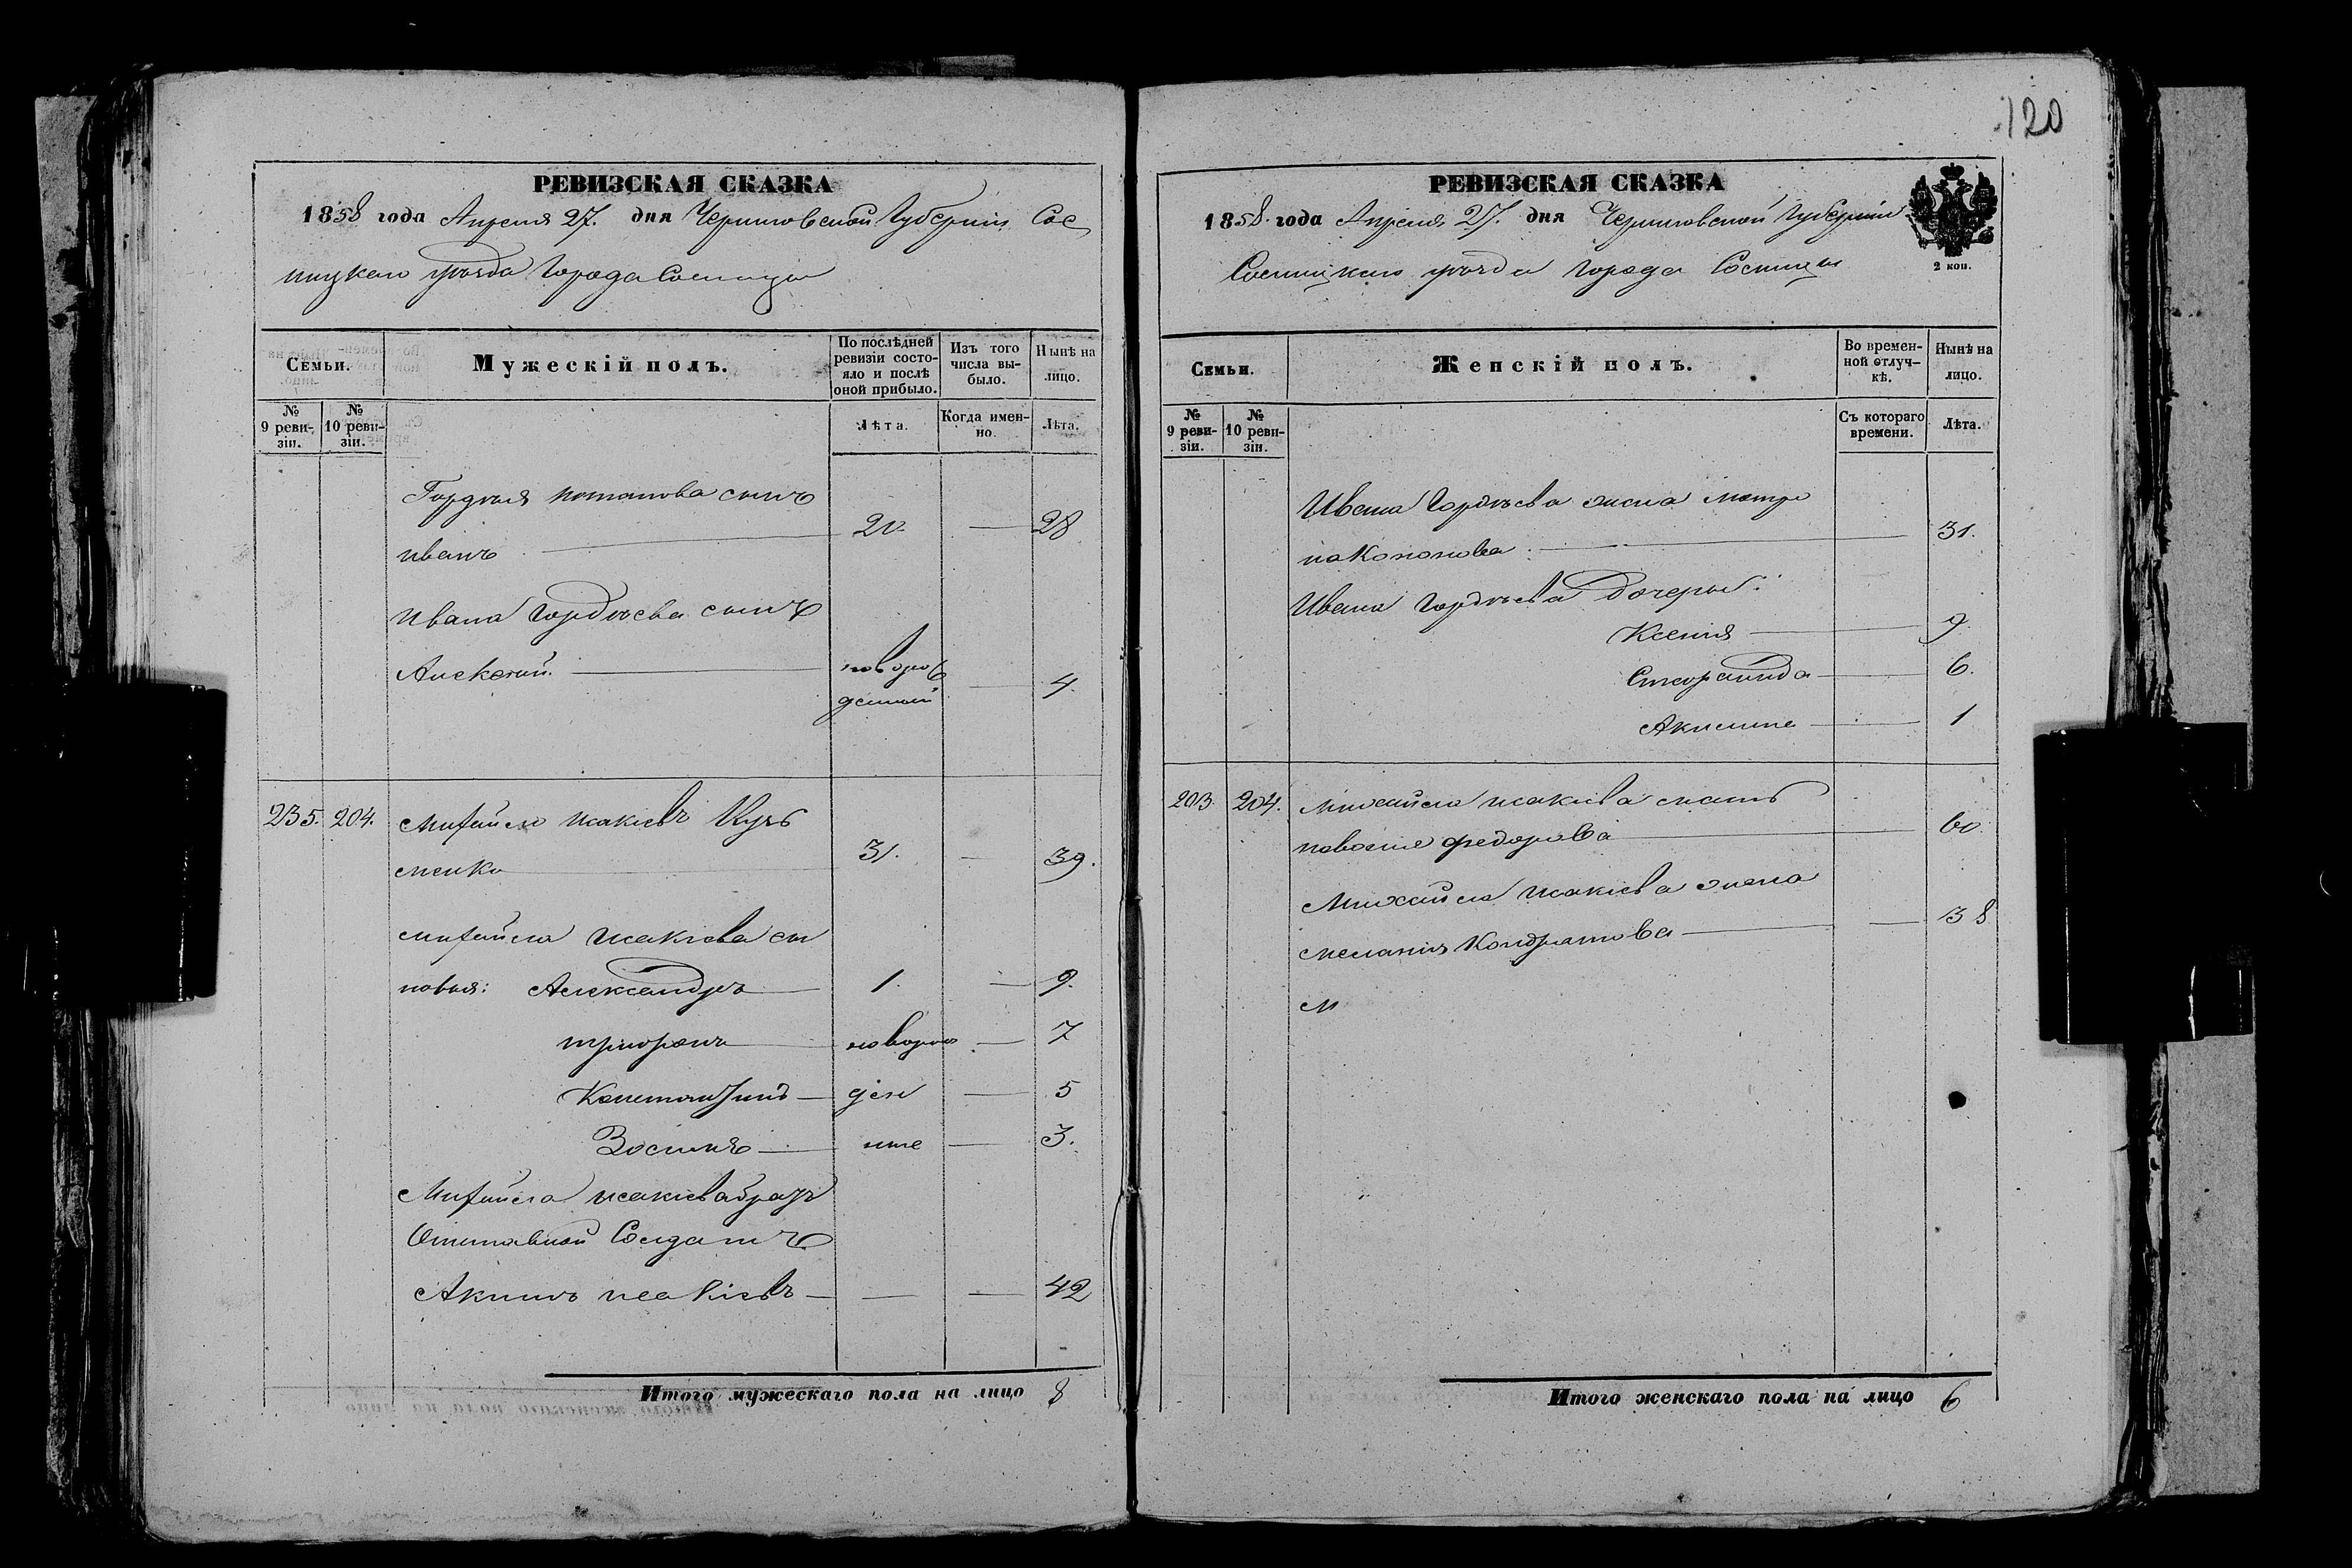 120
РЕВИЗСКАЯ СКАЗКА
1858 года Апреля 27. дня Черниговской Губерніи Сос
ницкаго уѣзда Города Сосницы
Семьи.
Мужескій полъ.
По послѣдней ревизіи состояло и послѣ оной прибыло.
Изъ того числа выбыло.
Нынѣ на лицо.
№ 9 ревизіи.
№ 10 ревизіи.
Лѣта.
Когда именно.
Лѣта.
Гордѣя потапова сынъ
иванъ 20. — 28
ивана Гордѣева сынъ
Алексѣй. новорож
денный — 4.
235. 204. Михайло исакіевъ Кузь
менко 31. — 39.
михайла исакіева сы
новья: Александръ 1. — 9.
новоро — 7
ден — 5
Зосимъ ные — 3.
Михайла исакіева братъ
Отставной Солдатъ
Акимъ исакіевъ — — — 42
Итого мужескаго пола на лицо 8
РЕВИЗСКАЯ СКАЗКА
1858. года Апреля 27. дня Черниговской Губерніи
Сосницкаго уѣзда Города Сосницы
2 коп.
Семьи.
Женскій полъ.
Во временной отлучкѣ.
Нынѣ на лицо.
№ 9 ревизіи.
№ 10 ревизіи.
Съ котораго времени.
Лѣта.
Ивана Гордѣева жена Матре
на Кононова 31.
Ивана Гордѣева дочеры:
Ксенія 9.
6.
Акилина 1
203. 204. Михайла исакіева мать
федорова 60.
Михайла исакіева жена
меланія Кондратова — 38
М
Итого женскаго пола на лицо 6